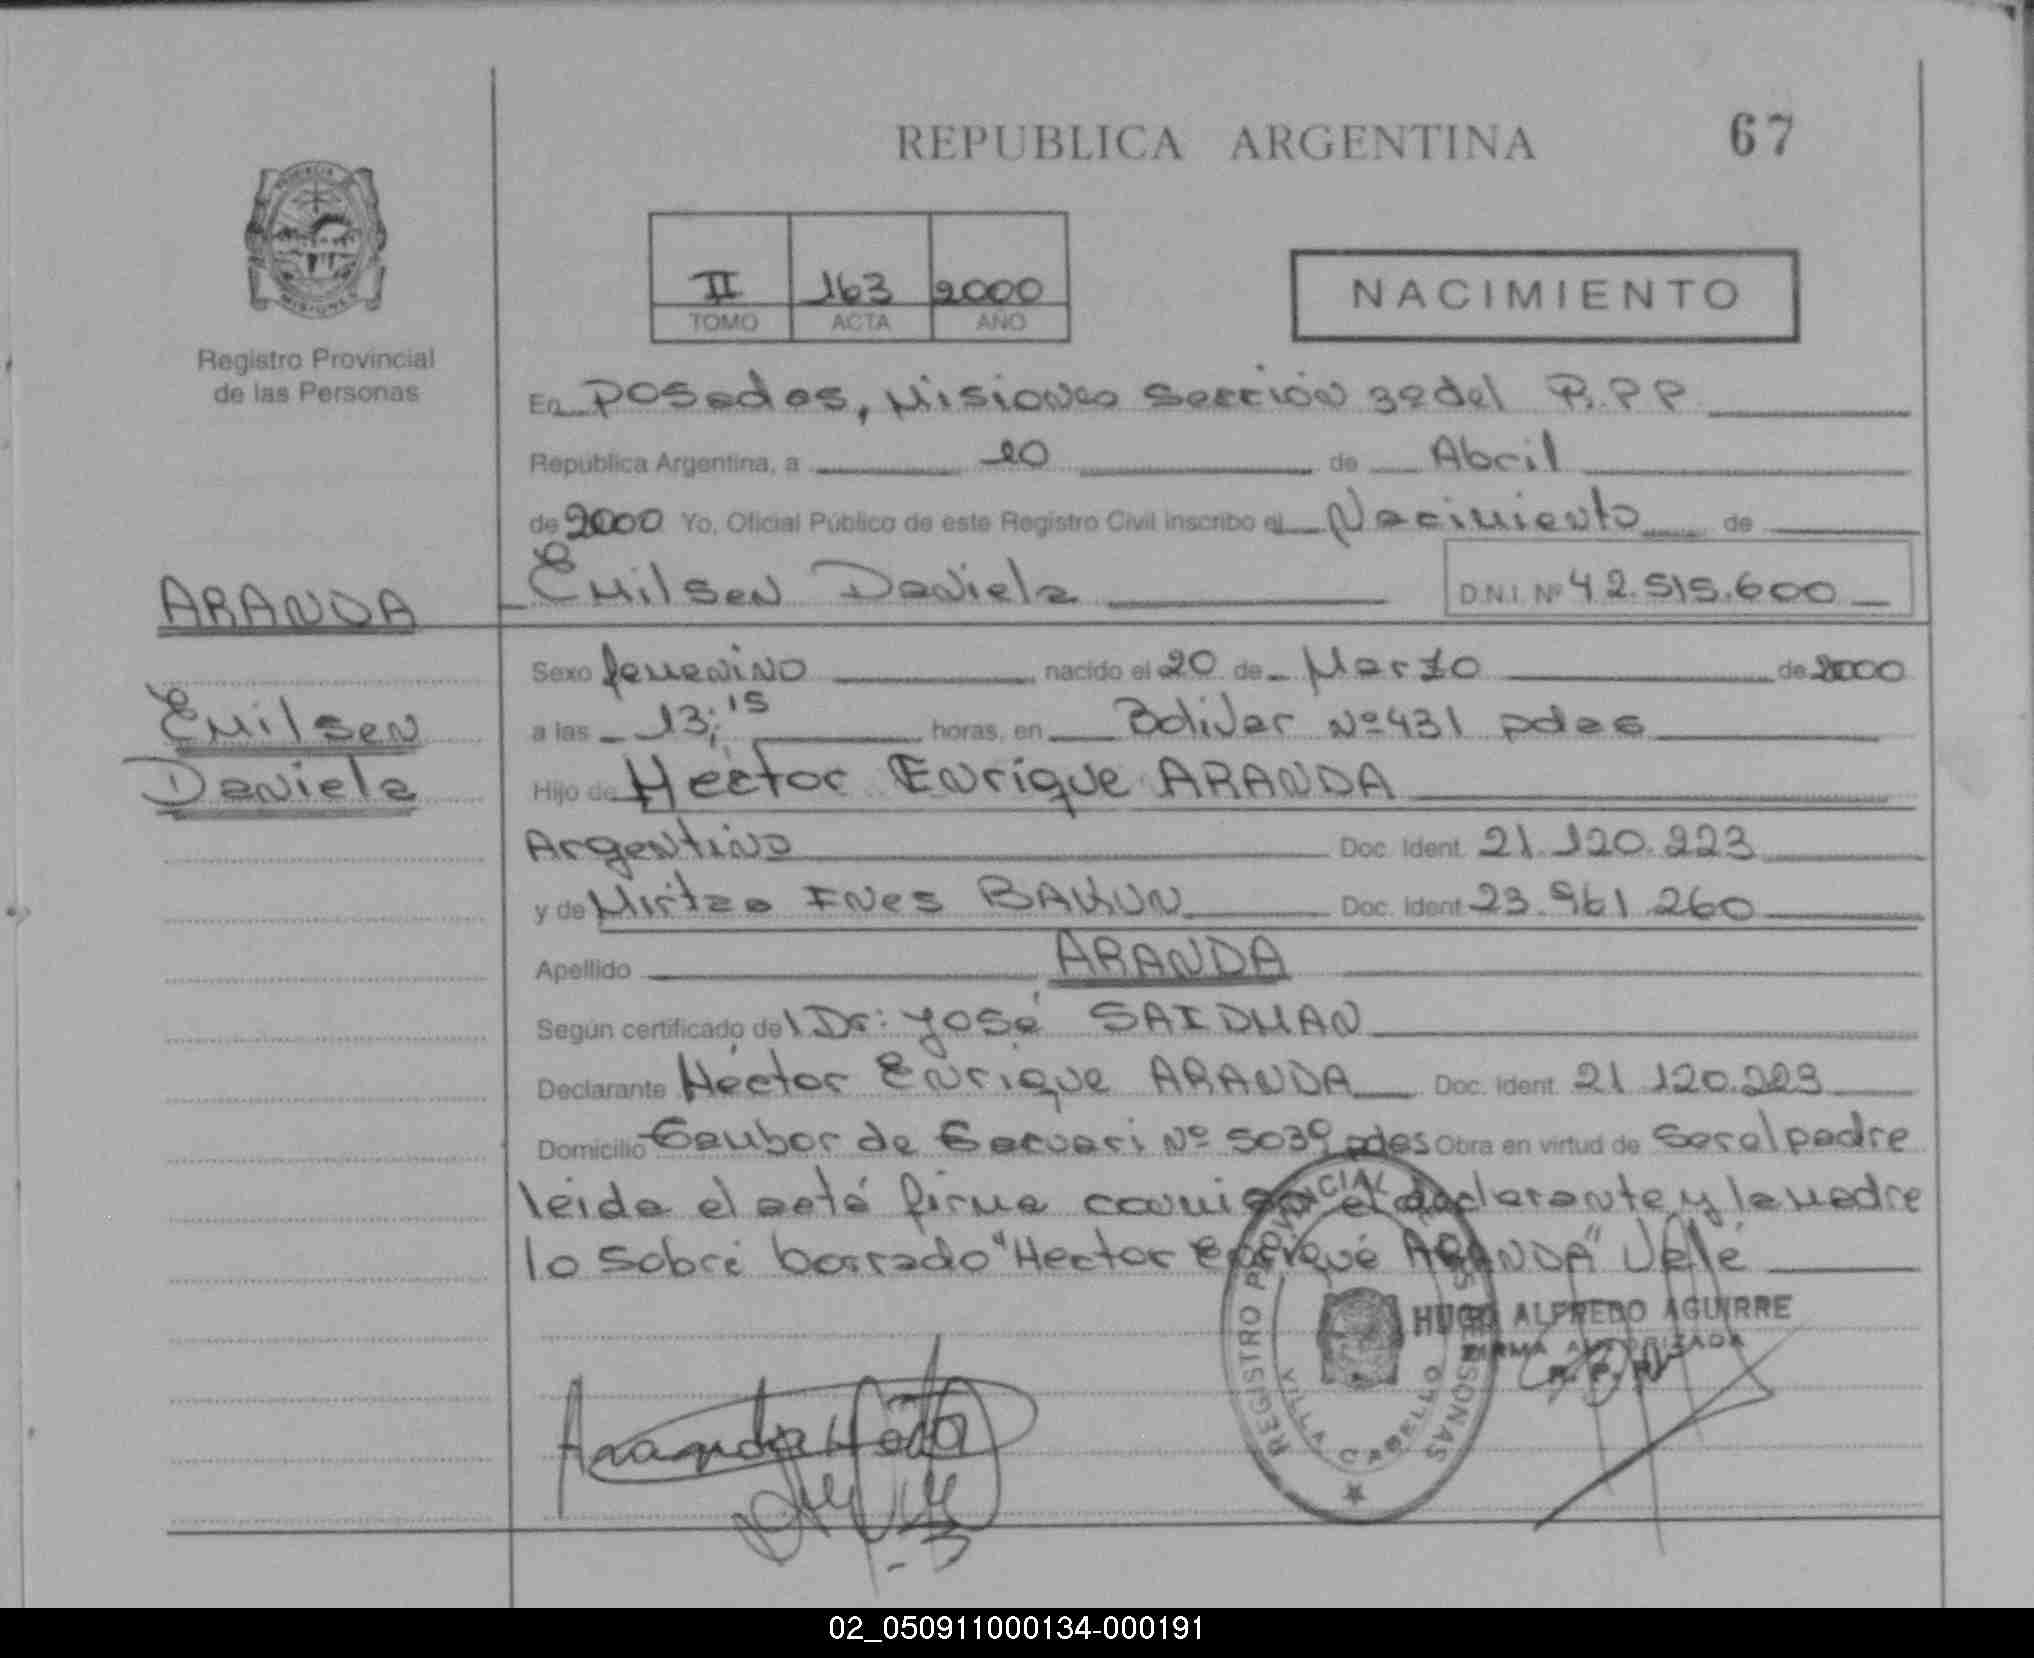 REPUBLICA ARGENTINA
67
II 163 2000
TOMO ACTA AÑO
NACIMIENTO
Registro Provincial
de las Personas
En Posadas, Misiones Sección 3º del R.P.P
República Argentina, a 10 de Abril
de 2000 Yo, Oficial Público de este Registro Civil inscribo el Nacimiento de
Emilsen Daniela D.N.I. Nº 42.515.600
ARANDA
Emilsen
Daniela
Sexo femenino nacido el 20 de Marzo de 2000
a las 13;15 horas, en Bolivar Nº 431 pdas
Hijo de Hector Enrique ARANDA
Argentino Doc. Ident. 21.120.223
y de Mirtza Ines BAKUN Doc. Ident. 23.961.260
Apellido ARANDA
Según certificado del Dr: José SAIDMAN
Declarante Héctor Enrique ARANDA Doc. Ident. 21.120.223
Domicilio de Nº 5039 pdas Obra en virtud de ser el padre
leida el acta firma conmigo el declarante y la madre
lo sobre borrado "Hector Enrique ARANDA" Vale
HUGO ALFREDO AGUIRRE
FIRMA AUTORIZADA
R. P. P.
REGISTRO PROVINCIAL DE LAS PERSONAS
VILLA CABELLO
Aranda
02_050911000134-000191